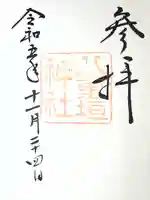 参拝
令和五年十一月二十四日